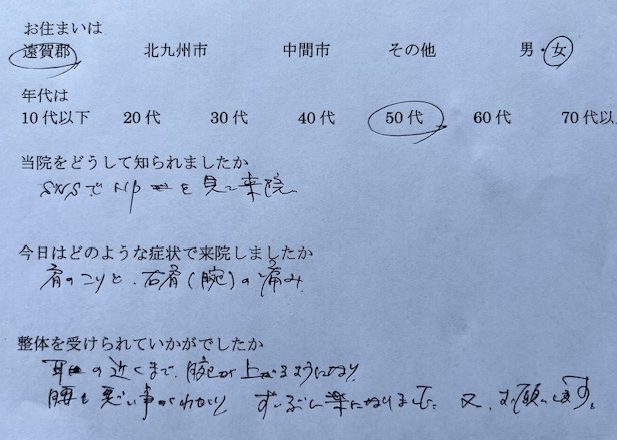 お住まいは
遠賀郡 北九州市 中間市 その他 男・女
年代は
10代以下 20代 30代 40代 50代 60代 70代以
当院をどうして知られましたか
SNSで HP を見て来院
今日はどのような症状で来院しましたか
肩のこりと、右肩(腕)の痛み
整体を受けられていかがでしたか
耳の近くまで、腕が上がるようになり
腰も悪い事がわかり ずいぶん楽になりました。又、お願いします。